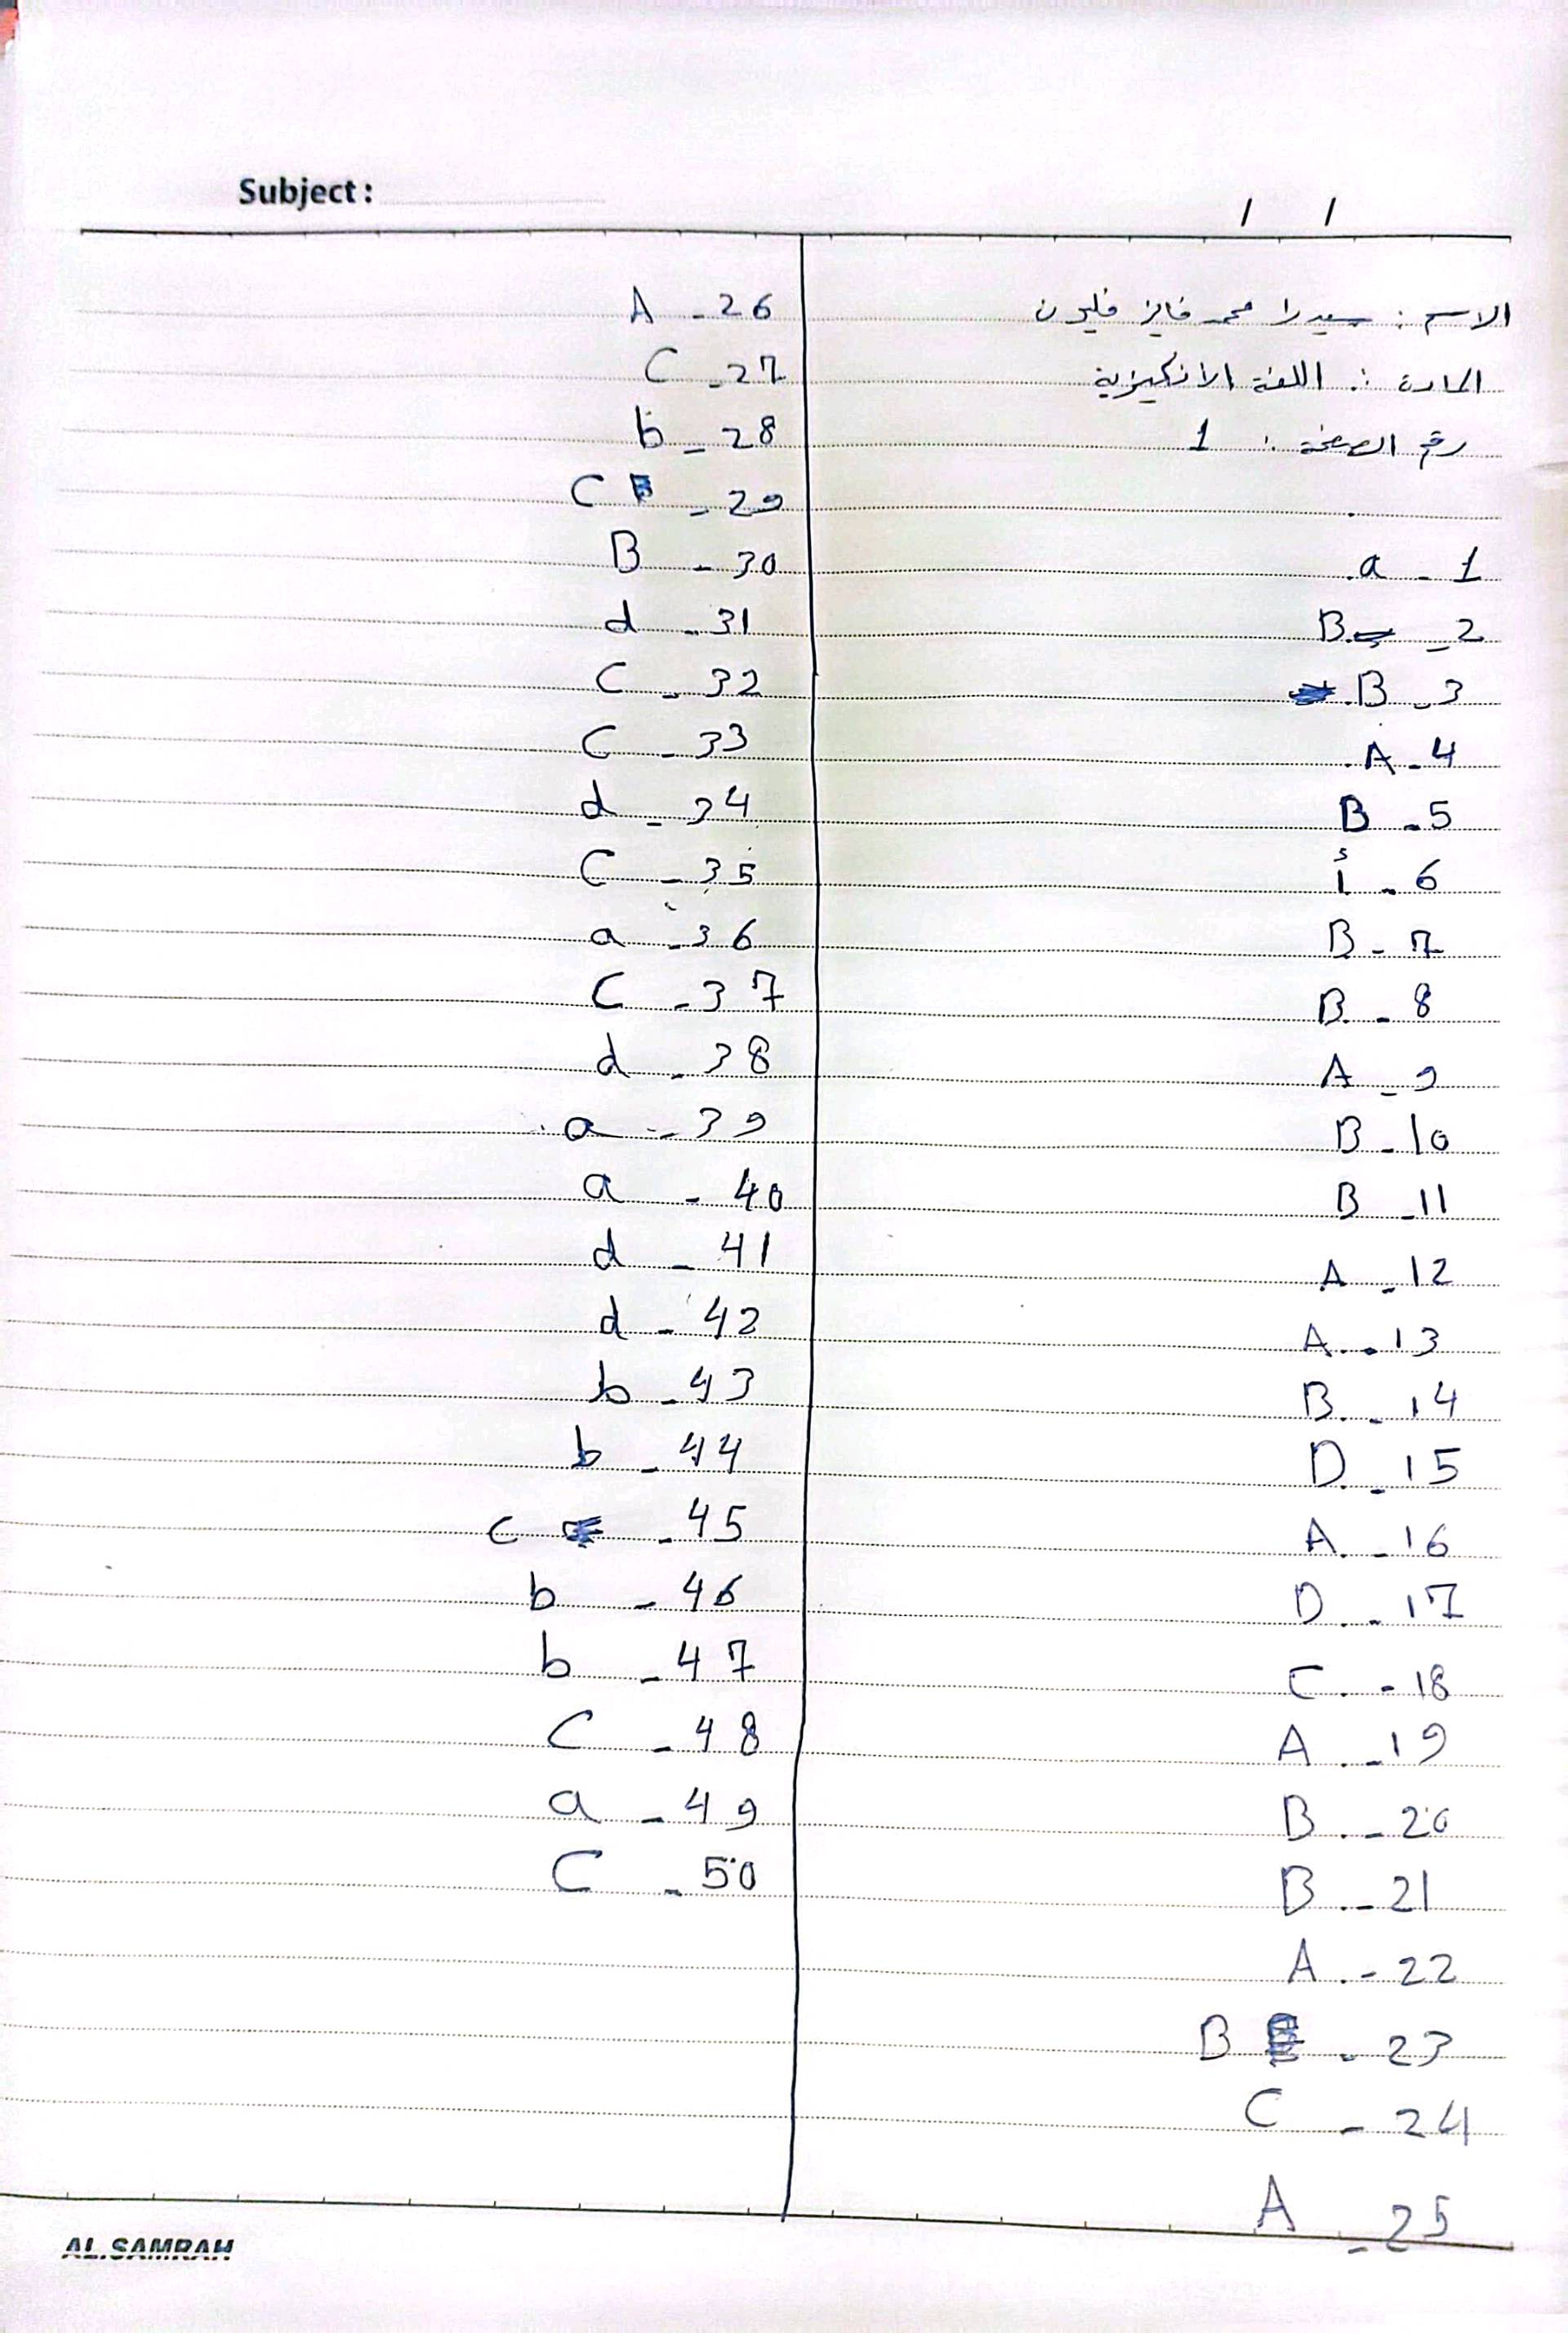 Subject :
/ /
الاسم : سيدرا محمد فايز فليون
المادة : اللغة الانكيزية
رقم الصفحة : 1
a - 1
B - 2
B - 3
A - 4
B - 5
أ - 6
B - 7
B - 8
A - 9
B - 10
B - 11
A - 12
A - 13
B - 14
D - 15
A - 16
D - 17
C - 18
A - 19
B - 20
B - 21
A - 22
B - 23
C - 24
A - 25
A - 26
C - 27
b - 28
C - 29
B - 30
d - 31
C - 32
C - 33
d - 34
C - 35
a - 36
C - 37
d - 38
a - 39
a - 40
d - 41
d - 42
b - 43
b - 44
C - 45
b - 46
b - 47
C - 48
a - 49
C - 50
AL.SAMRAH